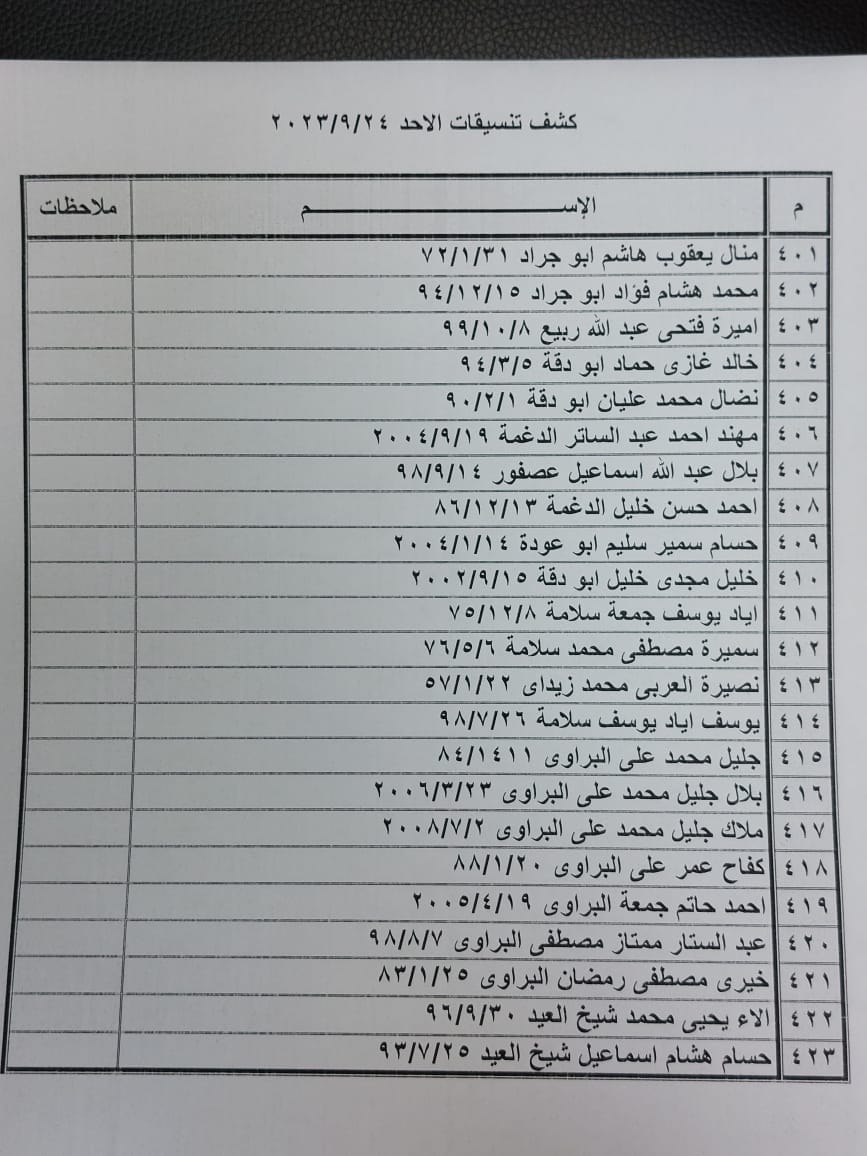 كشف تنسيقات الاحد ٢٠٢٣/٩/٢٤
م الإســـــــــــــــــــــم ملاحظات
٤٠١ منال يعقوب هاشم ابو جراد ٧٢/١/٣١
٤٠٢ محمد هشام فؤاد ابو جراد ٩٤/١٢/١٥
٤٠٣ اميرة فتحى عبد الله ربيع ٩٩/١٠/٨
٤٠٤ خالد غازى حماد ابو دقة ٩٤/٣/٥
٤٠٥ نضال محمد عليان ابو دقة ٩٠/٢/١
٤٠٦ مهند احمد عبد الساتر الدغمة ٢٠٠٤/٩/١٩
٤٠٧ بلال عبد الله اسماعيل عصفور ٩٨/٩/١٤
٤٠٨ احمد حسن خليل الدغمة ٨٦/١٢/١٣
٤٠٩ حسام سمير سليم ابو عودة ٢٠٠٤/١/١٤
٤١٠ خليل مجدى خليل ابو دقة ٢٠٠٢/٩/١٥
٤١١ اياد يوسف جمعة سلامة ٧٥/١٢/٨
٤١٢ سميرة مصطفى محمد سلامة ٧٦/٥/٦
٤١٣ نصيرة العربى محمد زيداى ٥٧/١/٢٢
٤١٤ يوسف اياد يوسف سلامة ٩٨/٧/٢٦
٤١٥ جليل محمد على البراوى ٨٤/١٤١١
٤١٦ بلال جليل محمد على البراوى ٢٠٠٦/٣/٢٣
٤١٧ ملاك جليل محمد على البراوى ٢٠٠٨/٧/٢
٤١٨ كفاح عمر على البراوى ٨٨/١/٢٠
٤١٩ احمد حاتم جمعة البراوى ٢٠٠٥/٤/١٩
٤٢٠ عبد الستار ممتاز مصطفى البراوى ٩٨/٨/٧
٤٢١ خيرى مصطفى رمضان البراوى ٨٣/١/٢٥
٤٢٢ الاء يحيى محمد شيخ العيد ٩٦/٩/٣٠
٤٢٣ حسام هشام اسماعيل شيخ العيد ٩٣/٧/٢٥